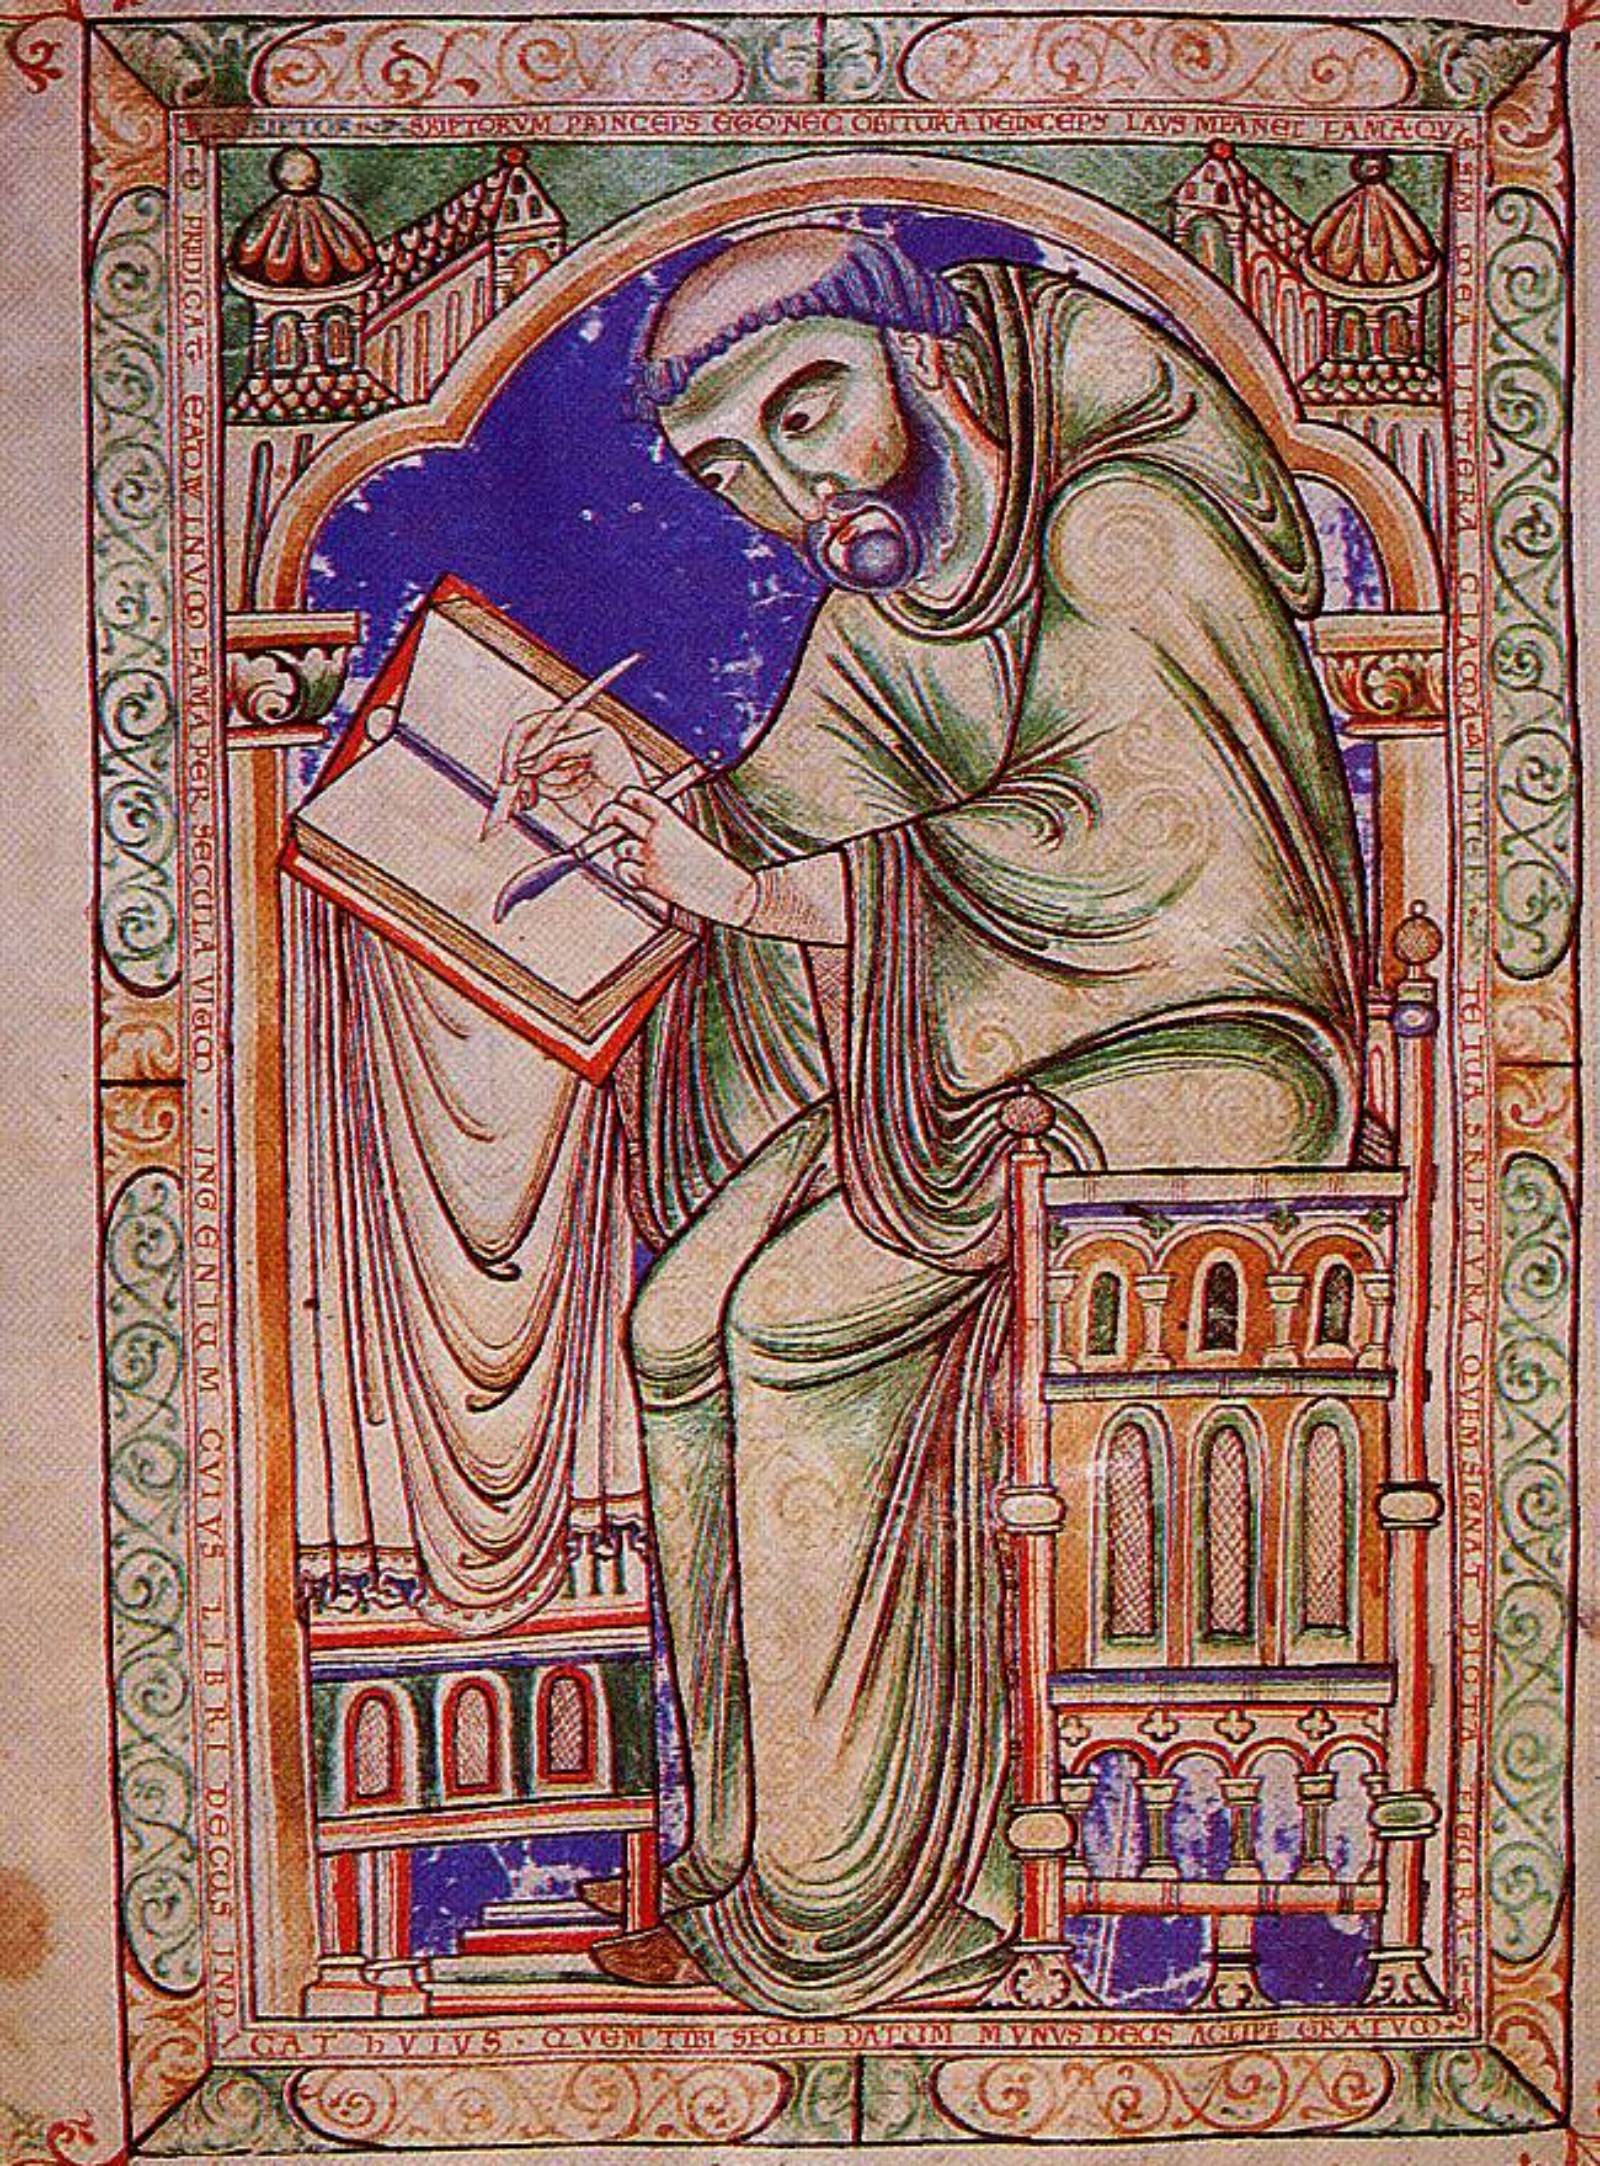 SCRIPTOR SKRIPTORVM PRINCEPS EGO NEC OBITURA DEINCEPS LAVS MEA NEC FAMA QV
IS SIM MEA LITTERA CLAMA LITTERA TE TUA SKRIPTVRA QVEM SIGNAT PICTA FIGURA
PREDICAT EADWINVM FAMA PER SECULA VIVUM · INGENIUM CVIVS LIBRI DECUS IND
ICAT HVIVS · QVEM TIBI SEQUE DATUM MVNVS DEUS ACCIPE GRATVM